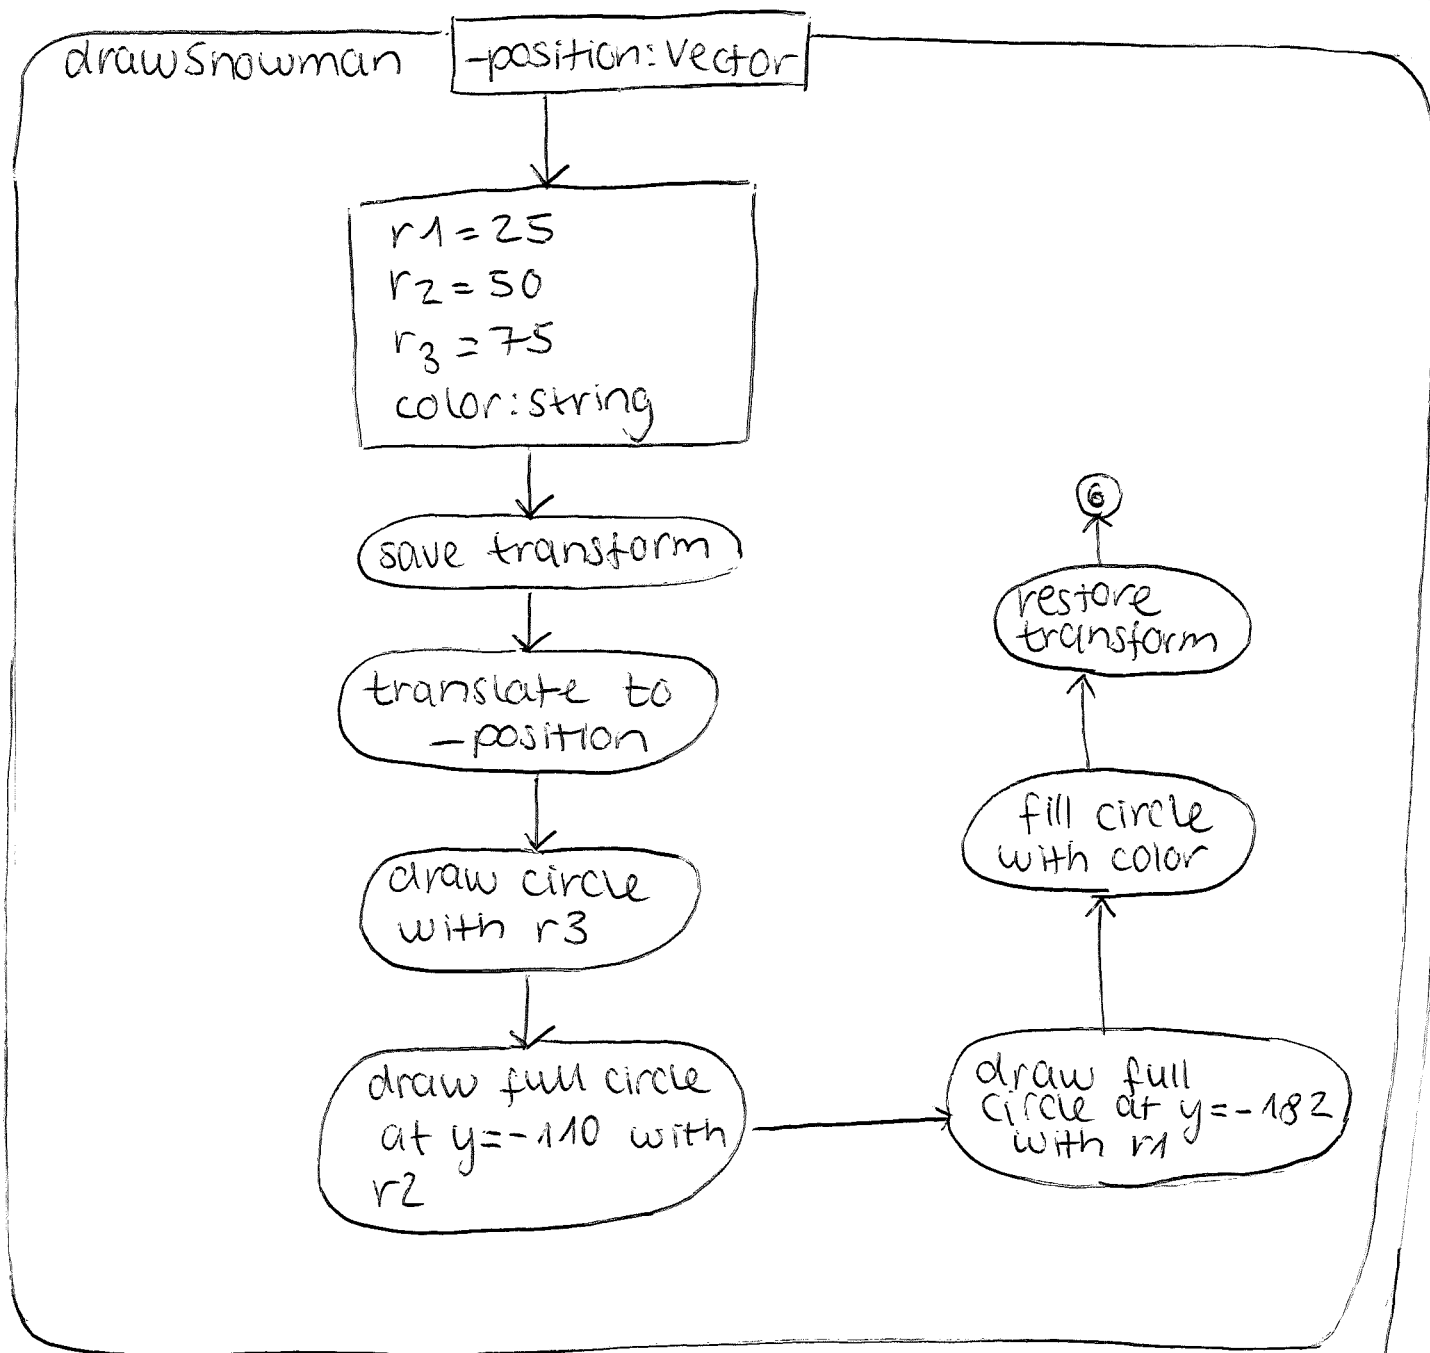 drawSnowman
-position:Vector
r1=25
r2=50
r3=75
color:string
save transform
translate to
-position
draw circle
with r3
draw full circle
at y=-110 with
r2
draw full
circle at y=-182
with r1
fill circle
with color
restore
transform